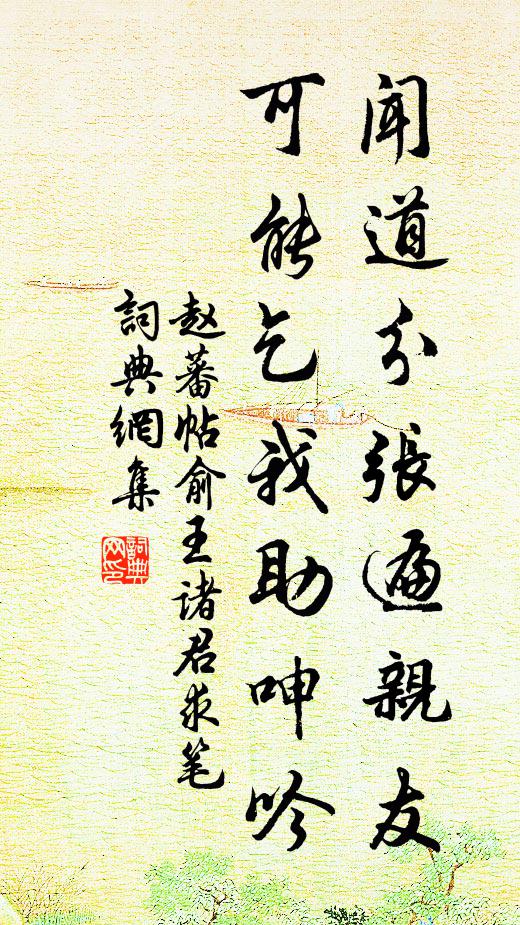 聞道分張遍親友
可能乞我助呻吟
赵蕃帖俞王诸君求笔
詞典網集
詞典网印